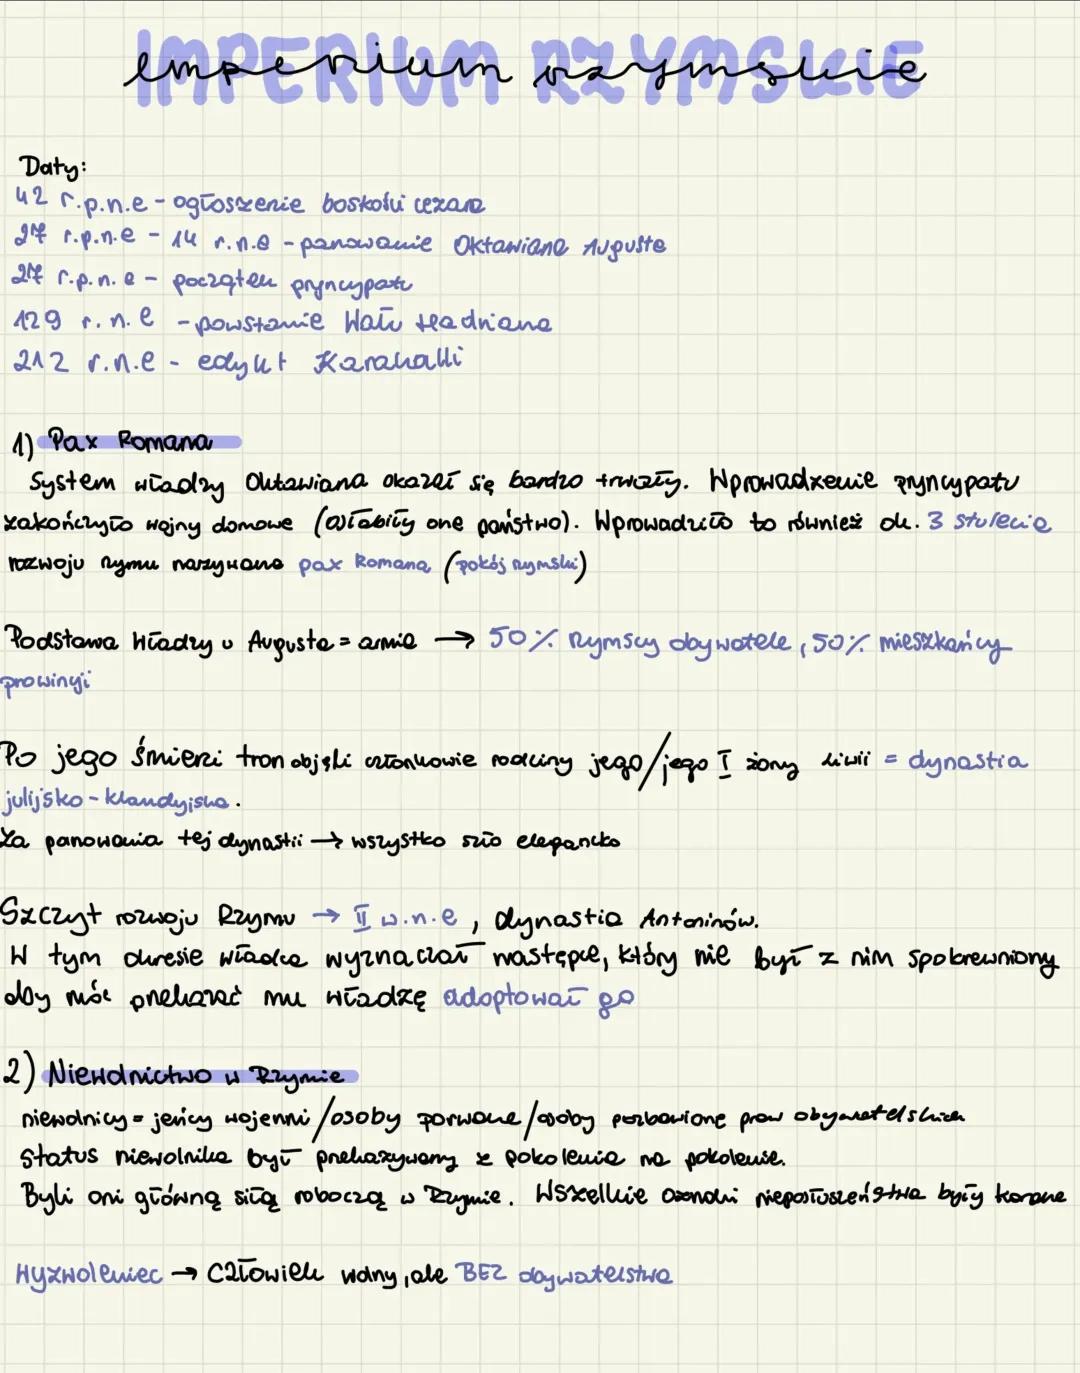 IMPERIUM RZYMSKIE
imperium rzymskie
Daty:
42 r.p.n.e - ogłoszenie boskości cezara
27 r.p.n.e - 14 r.n.e - panowanie Oktawiana Augusta
27 r.p.n.e - początek pryncypatu
129 r.n.e - powstanie Wału Hadriana
212 r.n.e - edykt Karakalli
1) Pax Romana
System władzy Oktawiana okazał się bardzo trwały. Wprowadzenie pryncypatu
zakończyło wojny domowe (osłabiły one państwo). Wprowadziło to również ok. 3 stulecia
rozwoju rzymu nazywane pax Romana (pokój rzymski)
Podstawa władzy u Augusta = armia → 50% rzymscy obywatele, 50% mieszkańcy
prowincji
Po jego śmierci tron objęli członkowie rodziny jego/jego I żony Liwii = dynastia
julijsko-klaudyjska.
Za panowania tej dynastii → wszystko szło elegancko
Szczyt rozwoju Rzymu → II w.n.e, dynastia Antoninów.
W tym okresie władca wyznaczał następce, który nie był z nim spokrewniony
aby móc przekazać mu władzę adoptował go
2) Niewolnictwo w Rzymie
niewolnicy = jeńcy wojenni/osoby porwane/osoby pozbawione praw obywatelskich
Status niewolnika był przekazywany z pokolenia na pokolenie.
Byli oni główną siłą roboczą w Rzymie. Wszelkie oznaki nieposłuszeństwa były karane
Wyzwoleniec → człowiek wolny, ale BEZ obywatelstwa